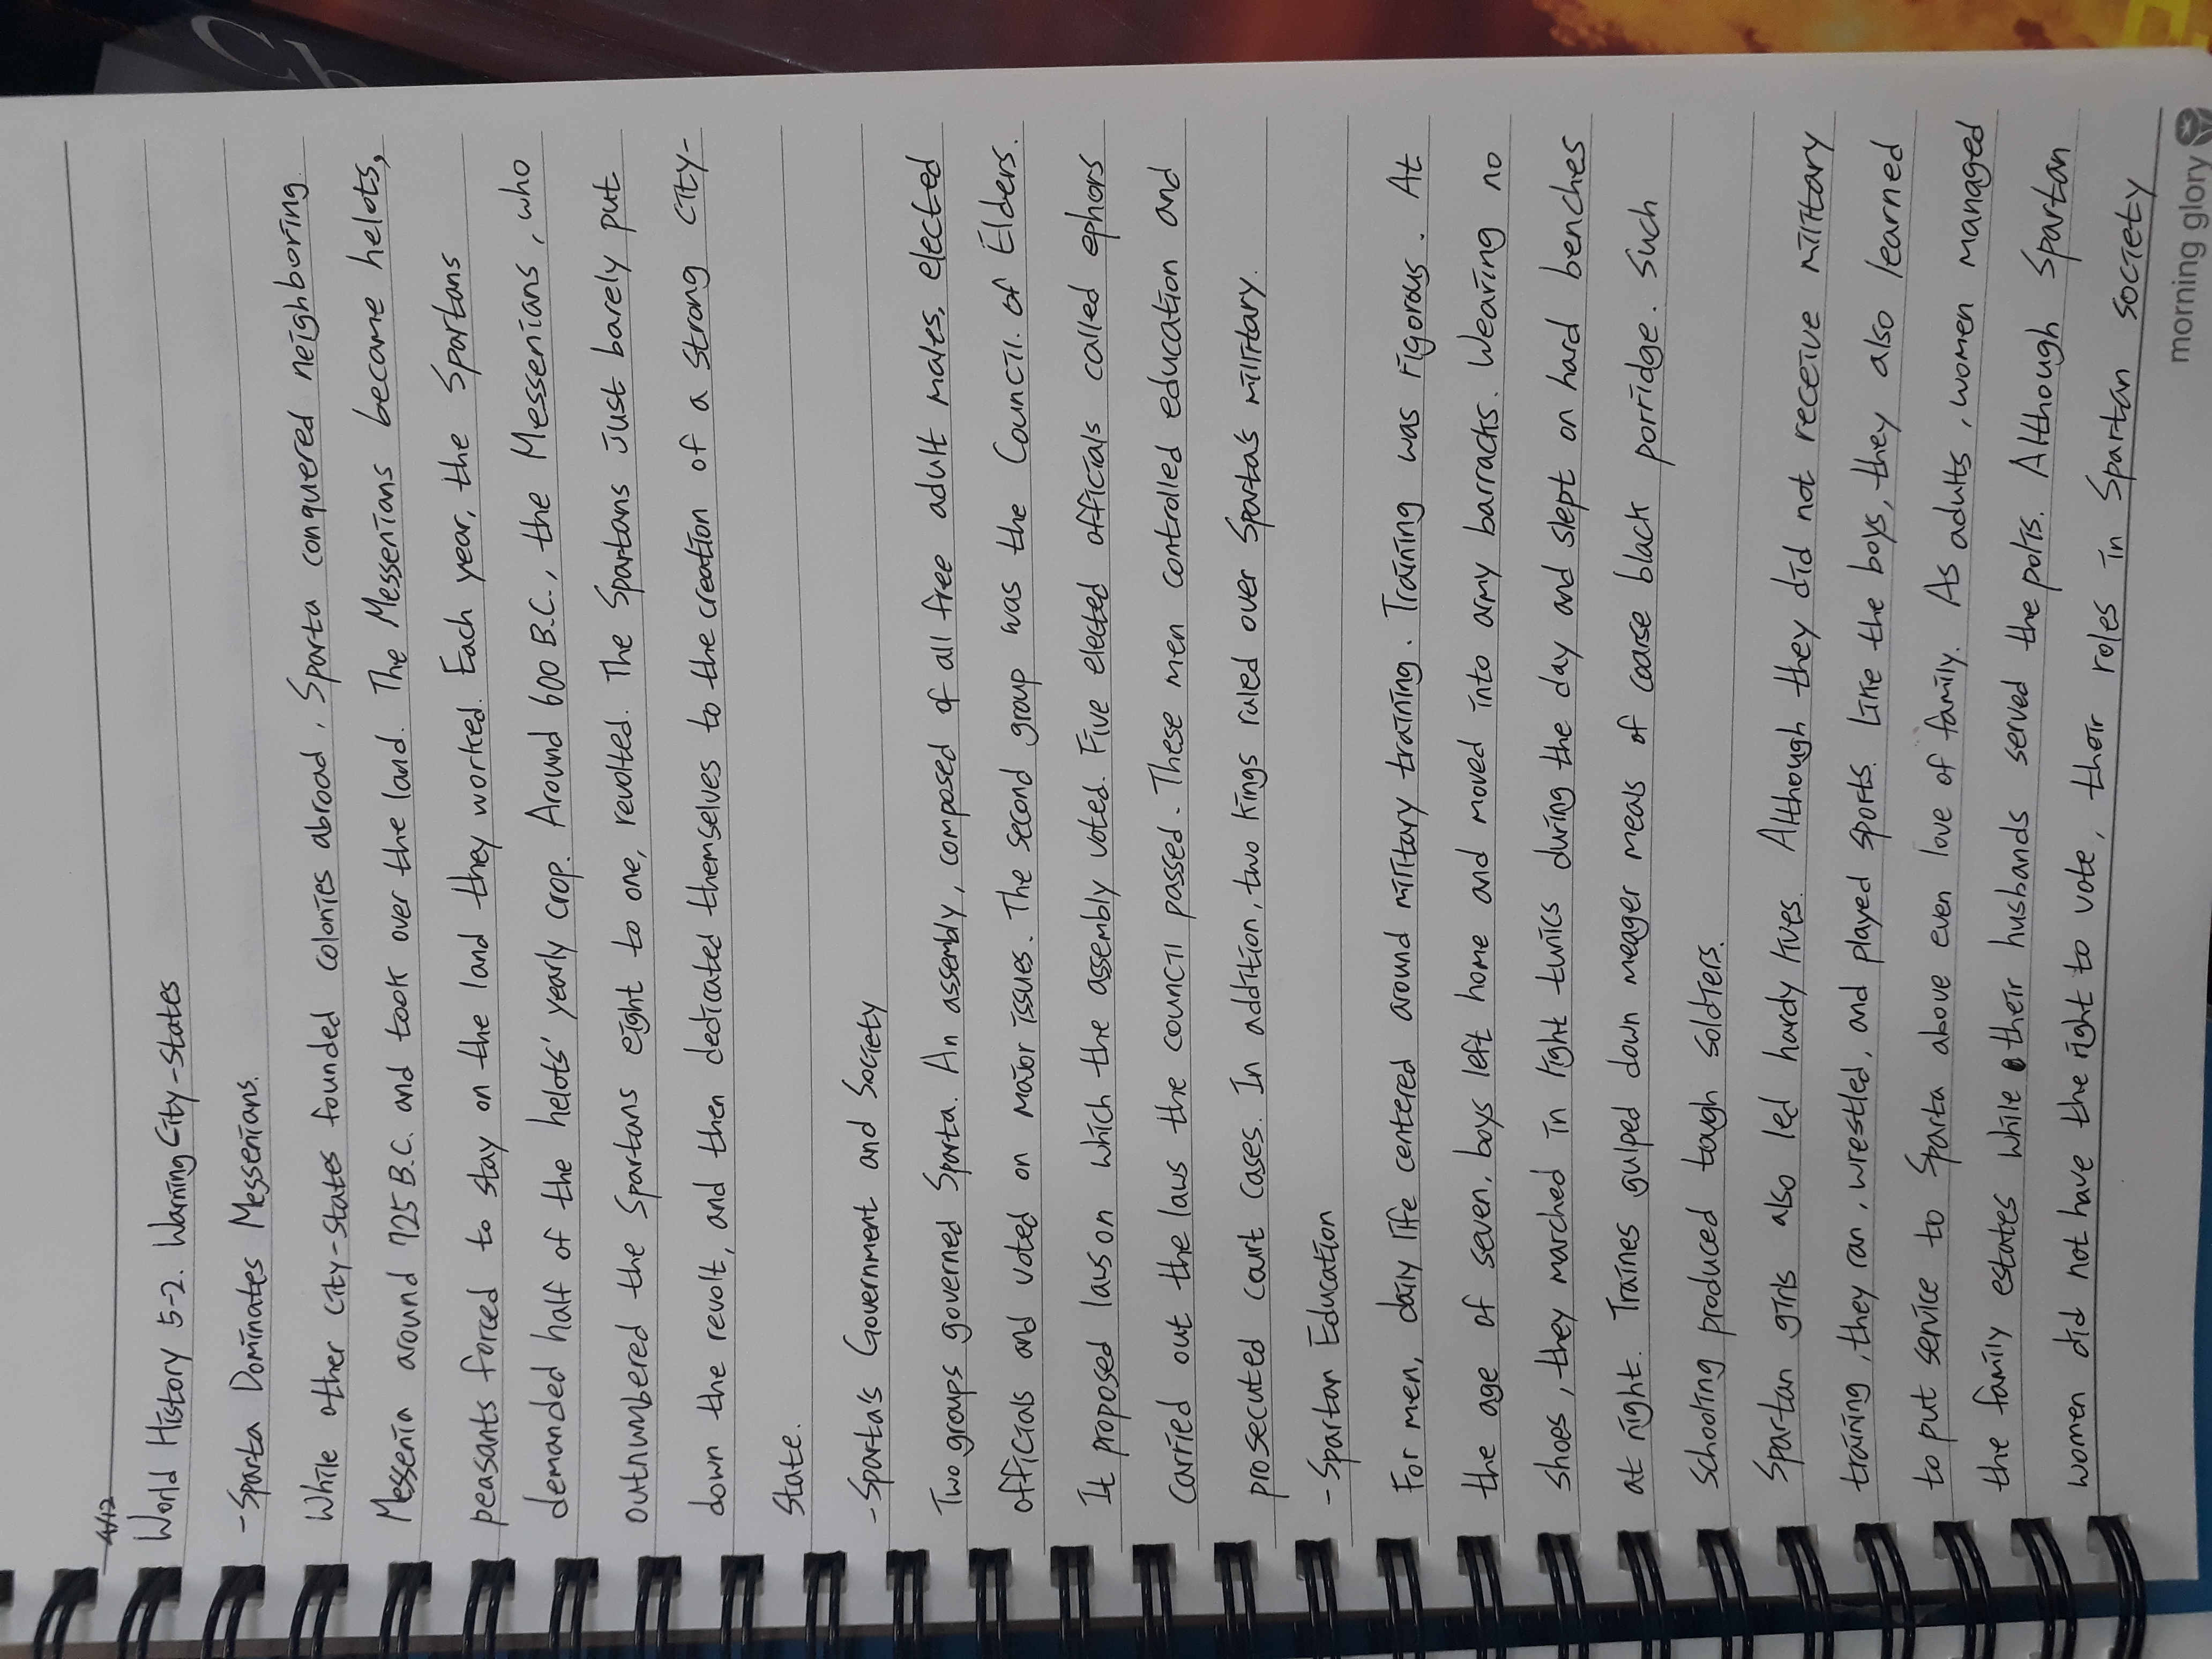 4/12
World History 5-2. Warning City-States
-Sparta Dominates Messenians.
While other city-states founded colonies abroad, Sparta conquered neighboring
Messenia around 725 B.C. and took over the land. The Messenians became helots,
peasants forced to stay on the land they worked. Each year, the Spartans
demanded half of the helots' yearly crop. Around 600 B.C., the Messenians, who
outnumbered the Spartans eight to one, revolted. The Spartans just barely put
down the revolt, and then dedicated themselves to the creation of a strong city-
state.
-Sparta's Government and Society
Two groups governed Sparta. An assembly, composed of all free adult males, elected
officials and voted on major issues. The second group was the Council of Elders.
It proposed laws on which the assembly voted. Five elected officials called ephors
carried out the laws the council passed. These men controlled education and
prosecuted court cases. In addition, two kings ruled over Sparta's military.
- Spartan Education
For men, daily life centered around military training. Training was rigorous. At
the age of seven, boys left home and moved into army barracks. Wearing no
shoes, they marched in light tunics during the day and slept on hard benches
at night. Traines gulped down meager meals of coarse black porridge. Such
schooling produced tough soldiers.
Spartan girls also led hardy lives. Although they did not receive military
training, they ran, wrestled, and played sports. Like the boys, they also learned
to put service to Sparta above even love of family. As adults, women managed
the family estates while their husbands served the polis. Although Spartan
women did not have the right to vote, their roles in Spartan society
morning glory